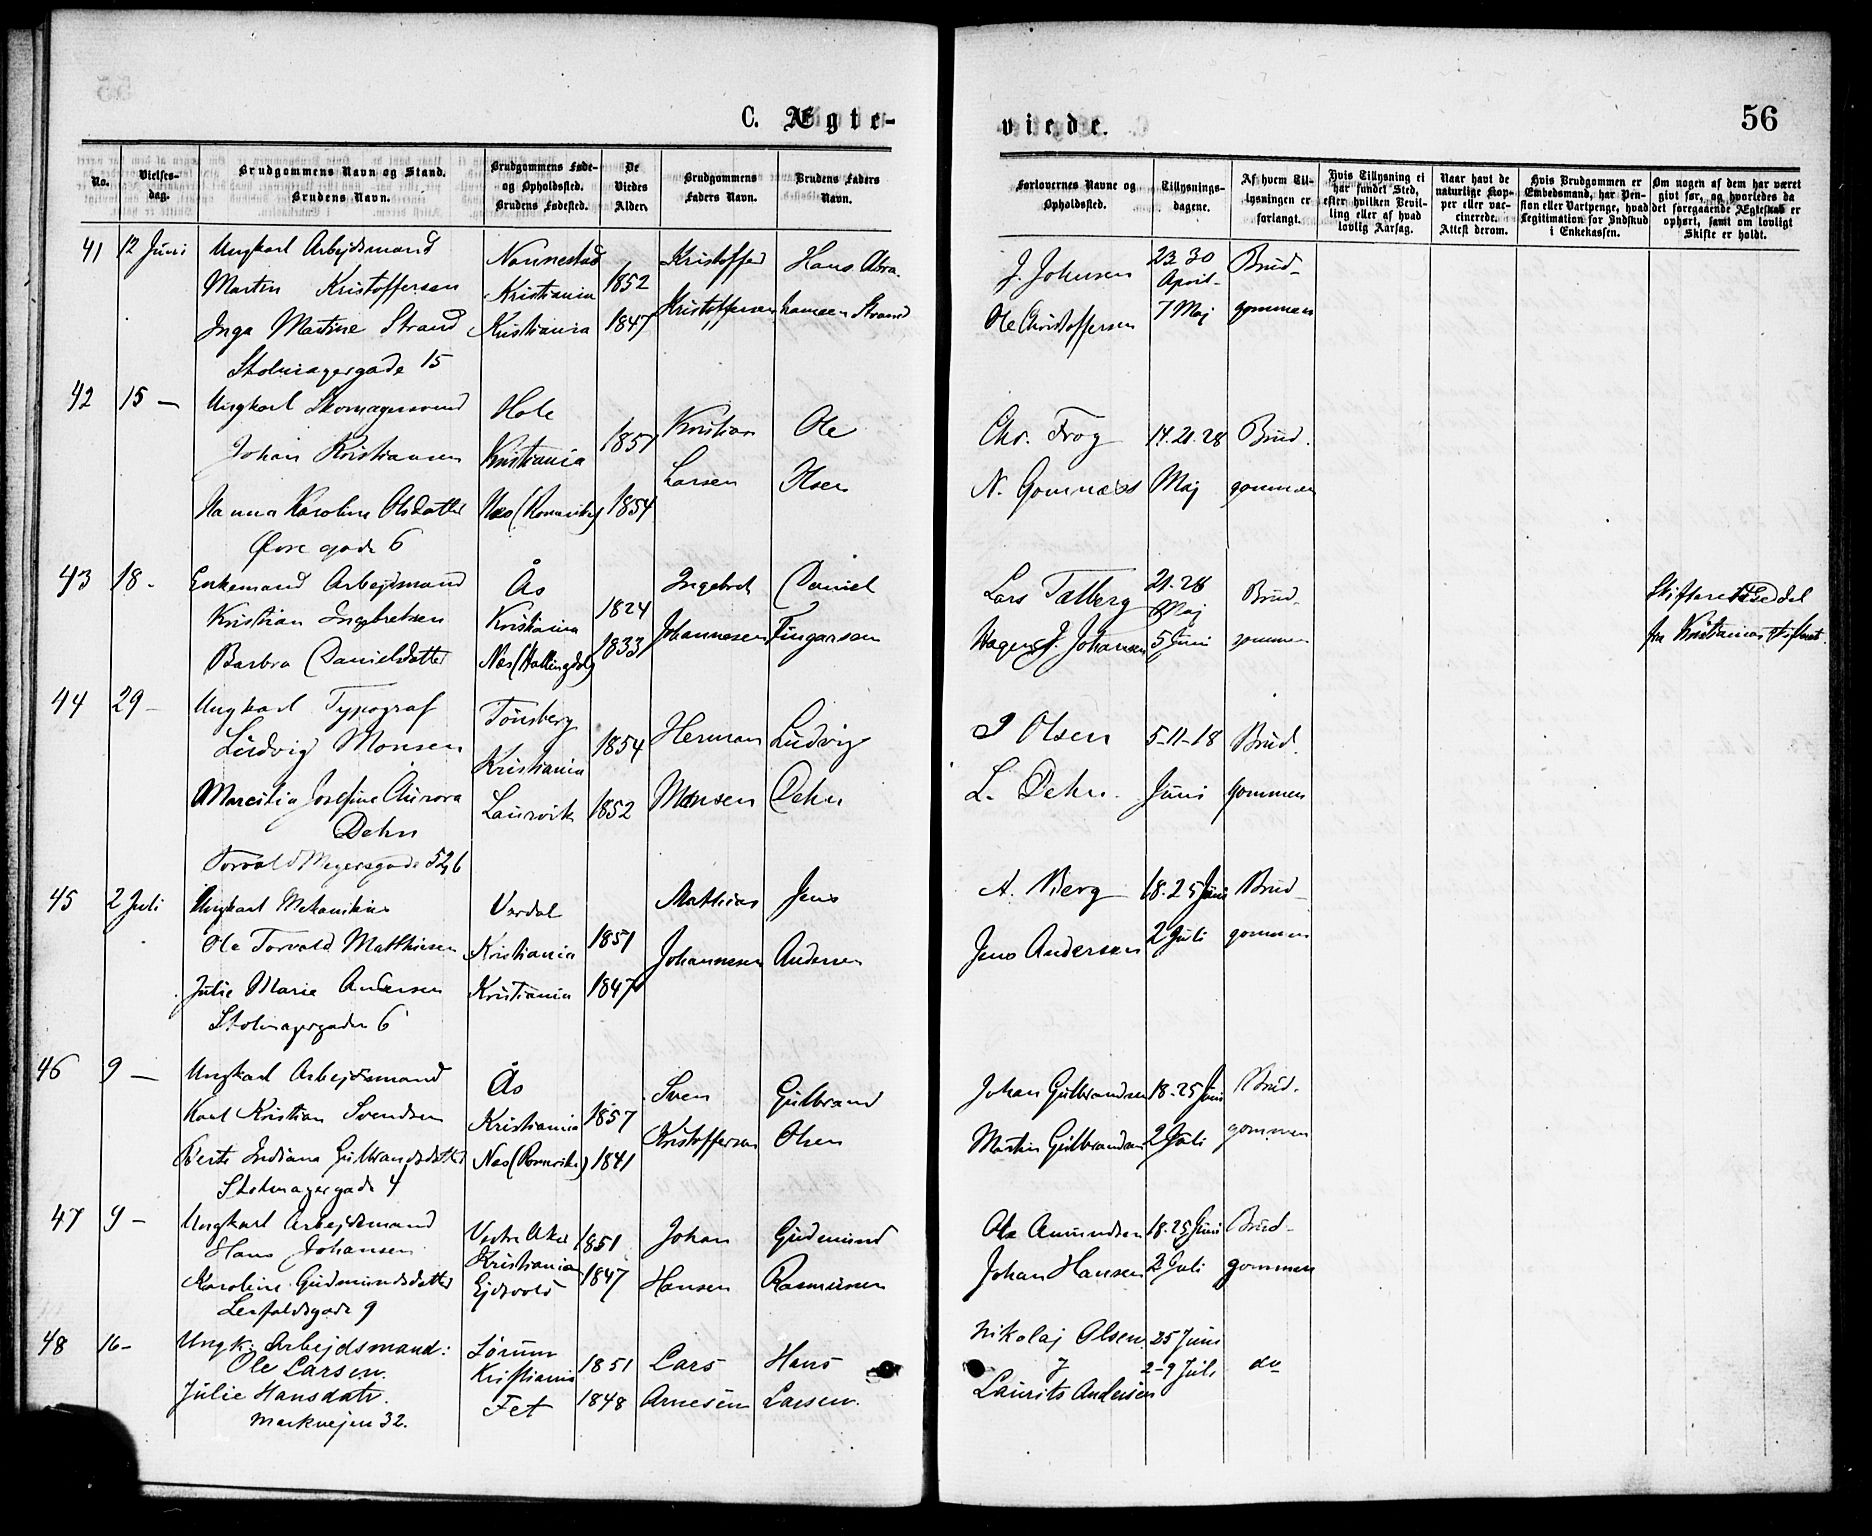 C. Ægte-
viede.
56
No.
Vielses-
dag.
Brudgommens Navn og Stand.
Brudens Navn.
Brudgommens Føde-
og Opholdssted.
Brudens Fødested.
De
Viedes
Alder.
Brudgommens
Faders Navn.
Brudens Faders
Navn.
Forlovernes Navne og
Opholdssted.
Tillysnings-
dagene.
Af hvem Til-
lysningen er
forlangt.
Hvis Tillysning ei
har fundet Sted,
efter hvilken Bevil-
ling eller af hvad
lovlig Aarsag.
Naar havt de
naturlige Kop-
per eller vac-
cinerede.
Attest derom.
Hvis Brudgommen er
Embedsmand, har Pen-
sion eller Vartpenge, hvad
Legitimation for Indskud
i Enkekassen.
Om nogen af dem har været
givt før, og hvorledes da
det foregaaende Ægteskab er
ophørt, samt om lovligt
Skifte er holdt.
41 12 Juni
Ungkarl Arbejdsmand
Martin Kristoffersen
Inga Martine Strand
Stolmagergade 15
Nannestad
Kristiania
Kristiania
1852
1847
Kristoffer
Kristoffersen
Hans Abra-
hamsen Strand
J. Johnsen
Ole Christoffersen
23. 30
April-
7 Maj
Brud-
gommen
42 15 —
Ungkarl Skomagersvend
Johan Kristiansen
Hanna Karoline Olsdatter
Øvre gade 6
Hole
Kristiania
Nes (Romerike)
1851
1854
Kristian
Larsen
Ole
Olsen
Chr. Frog
N. Gomnæs
14. 21. 28
Maj
Brud-
gommen
43 18 -
Enkemand Arbejdsmand
Kristian Ingebretsen
Barbra Danielsdatter
Ås
Kristiania
Nes (Hallingdal)
1824
1833
Ingebret
Johannesen
Daniel
Fingarsen
Lars Talberg
Hagen J. Johansen
21. 28
Maj
5 Juni
Brud-
gommen
Skifteretsseddel
fra Kristianias Skifteret.
44 29 -
Ungkarl Typograf
Ludvig Monsen
Josefine Aurora
Dehn
Torvald Meyersgade 52,6
Tønsberg
Kristiania
Laurvik
1854
1852
Herman
Monsen
Ludvig
Dehn
Olsen
L. Dehn.
5-11-18
Juni
Brud-
gommen
45 2 Juli
Ungkarl Mekanikus
Ole Torvald Matthisen
Julie Marie Andersen
Stolmagergaden 6
Verdal
Kristiania
Kristiania
1851
1847
Mathias
Johannesen
Jens
Andersen
A. Berg
Jens Andersen
18. 25 Juni
2 Juli
Brud-
gommen
46 9 —
Ungkarl Arbejdsmand
Karl Kristian Svendsen
Berte Indiana Gulbrandsdatter
Stolmagergade 4
Ås
Kristiania
Nes (Romerike)
1857
1841
Sven
Kristoffersen
Gulbrand
Olsen
Johan Gulbrandsen
Martin Gulbrandsen
18. 25 Juni
2 Juli
Brud-
gommen
47 9 -
Ungkarl Arbejdsmand
Hans Johansen
Karoline Gudmundsdatter
Leirfaldsgade 9
Vestre Aker
Kristiania
Ejdsvold
1851
1847
Johan
Hansen
Gudmund
Rasmussen
Ole Amundsen
Johan Hansen
18. 25 Juni
2 Juli
Brud-
gommen
48 16 -
Ungk. Arbejdsmand:
Ole Larsen.
Julie Hansdatr.
Markvejen 32.
Sørum
Kristiania
Fet
1851
1848
Lars
Arnesen
Hans
Larsen.
Nikolaj Olsen
Laurits Andersen
25 Juni
2-9 Juli
do